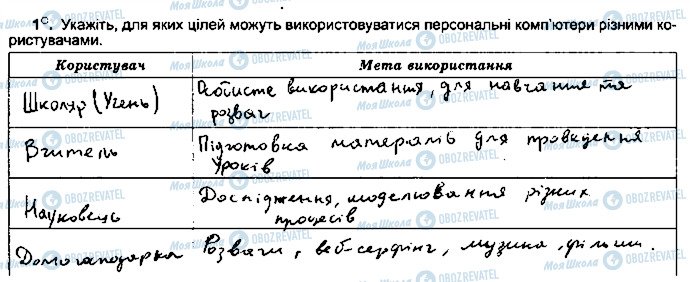 1ᶜ. Укажіть, для яких цілей можуть використовуватися персональні комп'ютери різними ко-
ристувачами.
Користувач Мета використання
Школяр (Учень) Особисте використання, для навчання та
розваг
Вчитель Підготовка матеріалів для проведення
уроків
Науковець Дослідження, моделювання різних
процесів
Домогаподарка Розваги, веб-серфінг, музика, фільми.